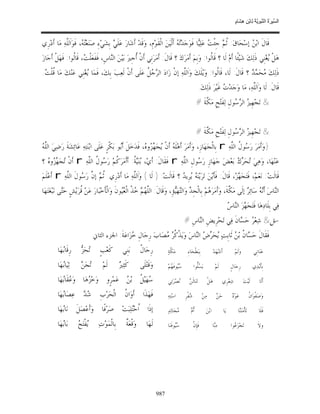 السيرة النبوية لابن هشام
قَالَ ابْنُ إسْحَاقَ ثُمَّ جِئْتُ عَلِيًّا فَوَجَدْتُهُ أَلْيَنَ الْقَوْمِ، وَقَدْ أَشَارَ عَلَيَّ بِشَيْءٍ صَنَعْتُهُ، فَوَاَللَّهِ مَا أَدْرِي
هَلْ يُغْنِي ذَلِكَ شَيْئًا أَمْ لَا ؟ قَالُوا: وَبِمَ أَمَرَكَ ؟ قَالَ: أَمَرَنِي أَنْ أُجِيرَ بَيْنَ النَّاسِ، فَفَعَلْتُ، قَالُوا: فَهَلْ أَجَازَ
ذَلِكَ مُحَمَّدٌ ؟ قَالَ: لَا، قَالُوا: وَيْلَكَ وَاَللَّهِ إنْ زَادَ الرَّجُلُ عَلَى أَنْ لَعِبَ بِكَ، فَمَا يُغْنِي عَنْكَ مَا قُلْتَ.
قَالَ: لَا وَاَللَّهِ، مَا وَجَدْتُ غَيْرَ ذَلِكَ
& تَجْهِيزُ الرَّسُولِ لِفَتْحِ مَكَّةَ //
& تَجْهِيزُ الرَّسُولِ لِفَتْحِ مَكَّةَ //
(وَأَمَرَ رَسُولُ اللَّهِ r بِالْجَهَازِ، وَأَمَرَ أَهْلَهُ أَنْ يُجَهِّزُوهُ، فَدَخَلَ أَبُو بَكْرٍ عَلَى ابْنَتِهِ عَائِشَةَ رَضِيَ اللَّهُ
عَنْهَا، وَهِيَ تُحَرِّكُ بَعْضَ جَهَازِ رَسُولِ اللَّهِ r فَقَالَ: أَيْ، بُنَيَّةُ: أَأَمَرَكُمْ رَسُولُ اللَّهِ r أَنْ تُجَهِّزُوهُ ؟
قَالَتْ: نَعَمْ، فَتَجَهَّزْ، قَالَ: فَأَيْنَ تَرَيْنَهُ يُرِيدُ ؟ قَالَتْ: ( لَا ) وَاَللَّهِ مَا أَدْرِي. ثُمَّ إنَّ رَسُولَ اللَّهِ r أَعْلَمَ
النَّاسَ أَنَّهُ سَائِرٌ إلَى مَكَّةَ، وَأَمَرَهُمْ بِالْجِدِّ وَالتَّهَيُّؤِ، وَقَالَ: اللَّهُمَّ خُذْ الْعُيُونَ وَالْأَخْبَارَ عَنْ قُرَيْشٍ حَتَّى نَبْغَتَهَا
فِي بِلَادِهَا فَتَجَهَّزَ النَّاسُ
سل& شِعْرُ حَسَّانَ فِي تَحْرِيضِ النَّاسِ //
فَقَالَ حَسَّانُ بْنُ ثَابِتٍ يُحَرِّضُ النَّاسَ وَيَذْكُرُ مُصَابَ رِجَالِ خُزَاعَةَ: الجزء الثاني
عَنَانِي وَلَمْ أَشْهَدْ بِبَطْحَاءِ مَكَّةَ رِجَالُ بَنِي كَعْبٍ تُحَزُّ رِقَابُهَا
بِأَيْدِي رِجَالٍ لَمْ يَسُلُّوا سُيُوفَهُمْ وَقَتْلَى كَثِيرٌ لَمْ تُجَنَّ ثِيَابُهَا
أَلَا لَيْتَ شِعْرِي هَلْ تَنَالَنَّ نُصْرَتِي سُهَيْلَ بْنَ عَمْرٍو وَخْزُهَا وَعُقَابُهَا
وَصَفْوَانُ عَوْدٌ حَنَّ مِنْ شُفْرِ اسْتِهِ فَهَذَا أَوَانُ الْحَرْبِ شُدَّ عِصَابُهَا
فَلَا تَأْمَنَنَّا يَا ابْنَ أُمِّ مُجَالِدٍ إذَا اُحْتُلِبَتْ صَرْفًا وَأَعْصَلَ نَابُهَا
وَلَا تَجْزَعُوا مِنَّا فَإِنَّ سُيُوفَنَا لَهَا وَقْعَةٌ بِالْمَوْتِ يُفْتَحُ بَابُهَا
987